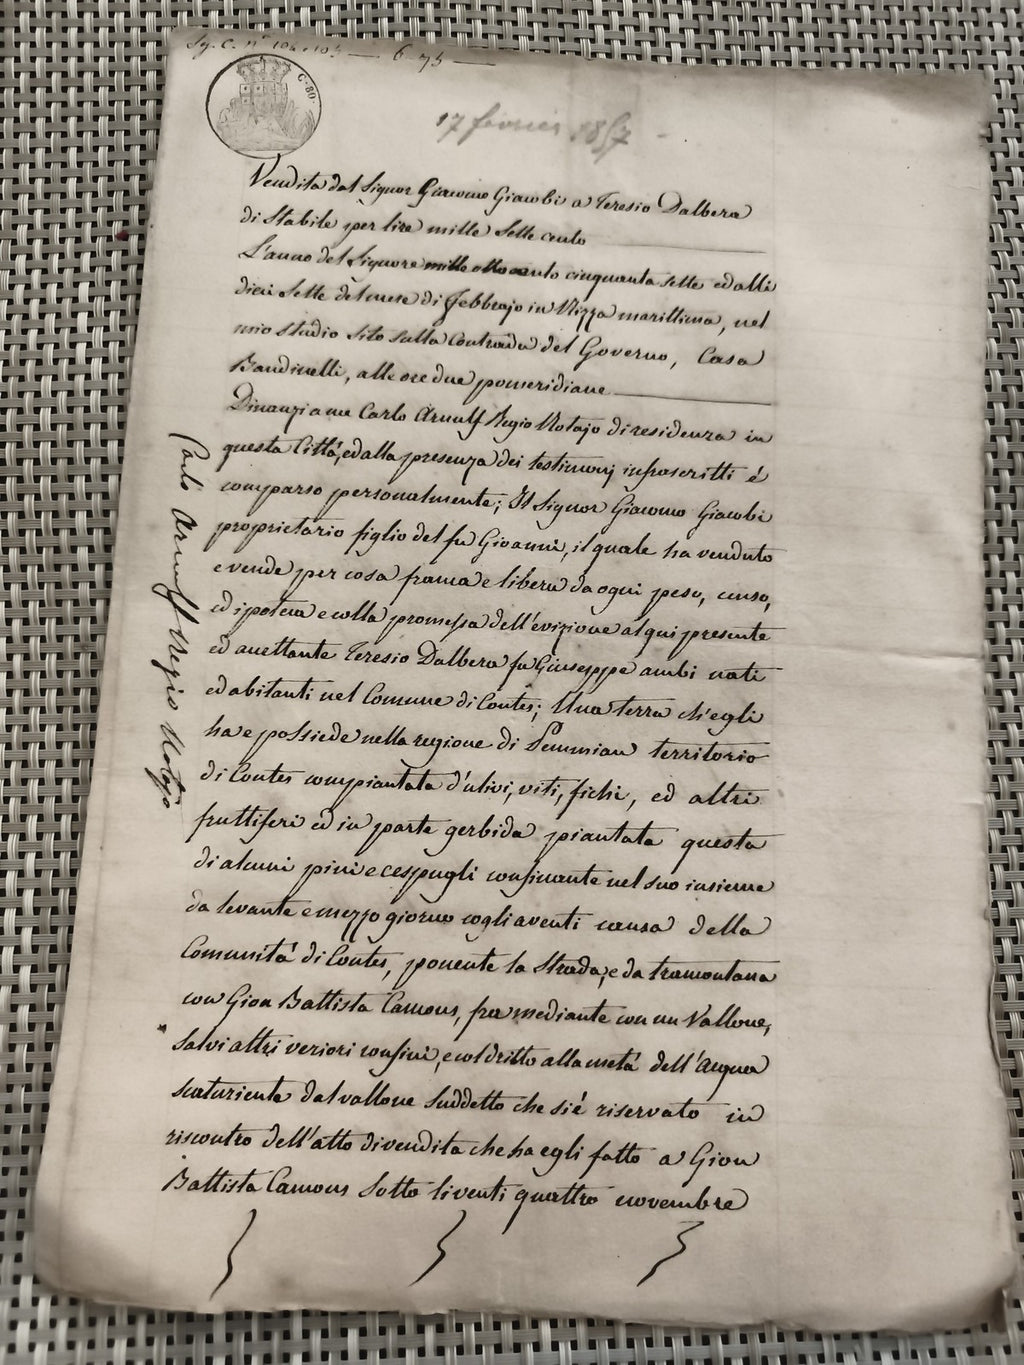 Sg. C. nº 104 e 105 — 6 - 75 —
C. 80
17 février 1857 -
Vendita dal Signor Giacomo Giacobi a Teresio Dalbera
di Stabile per lire mille Sette cento
L'anno del Signore mille otto cento cinquanta sette ed alli
dieci Sette del mese di Febbrajo in Nizza marittima, nel
mio studio sito sulla Contrada del Governo, Casa
Bandinelli, alle ore due pomeridiane
Dinanzi a me Carlo Arnulf Regio Notajo di residenza in
questa Città, ed alla presenza dei testimonj infrascritti é
comparso personalmente; Il Signor Giacomo Giacobi
proprietario figlio del fu Gioanni, il quale ha venduto
e vende per cosa franca e libera da ogni peso, censo,
ed ipoteca e colla promessa dell'evizione al qui presente
ed accettante Teresio Dalbera fu Giuseppe ambi nati
ed abitanti nel Comune di Contes; Una terra ch'egli
ha e possiede nella regione di Pemmian territorio
di Contes compiantata d'ulivi, viti, fichi, ed altri
fruttiferi ed in parte gerbida piantata questa
di alcuni pini e cespugli confinante nel suo insieme
da levante e mezzo giorno cogli aventi causa della
Comunità di Contes, ponente la Strada, e da tramontana
con Gion Battista Camous, fra mediante con un Vallone,
Salvi altri veriori confini, e col dritto alla metà dell'acqua
scaturiente dal vallone Suddetto che si é riservato in
riscontro dell'atto di vendita che ha egli fatto a Gion
Battista Camous Sotto li venti quattro novembre
Carlo Arnulf Regio Notajo